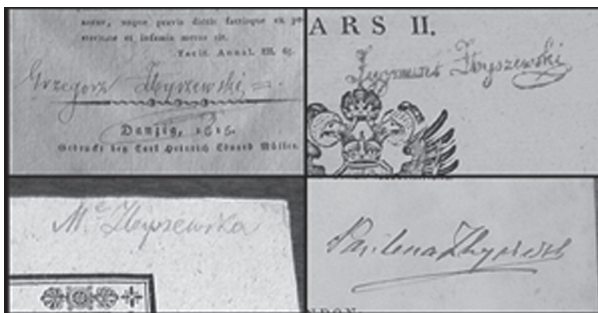 autor, usque pravis dictis factisque ex po
steritate et infamia metus sit.
Tacit. Annal. III. 65.
Grzegorz Zbyszewski
Danzig, 1815.
Gedruckt bey Carl Heinrich Eduard Müller.
ARS II.
Zbyszewski
M.e Zbyszewska
Paulena